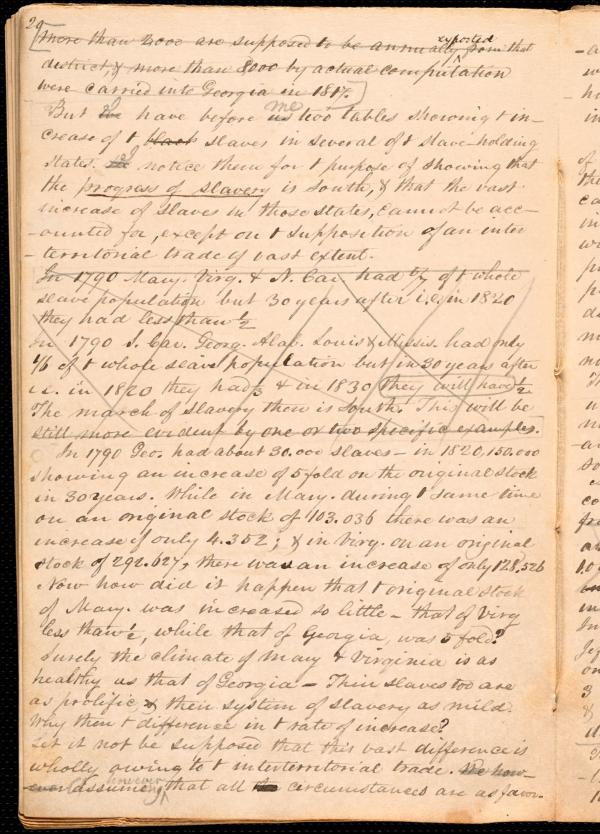 29
exported
more than 2000 are supposed to be annually from that
district, & more than 8000 by actual computation
were carried into Georgia in 1817.
But I have before me two tables showing t in-
crease of t black slaves in several of t slave-holding
states. I notice them for t purpose of showing that
the progress of slavery is South, & that the vast
increase of slaves in those states, cannot be acc-
-ounted for, except on t supposition of an inter
-territorial trade of vast extent.
In 1790 Mary. Virg. & N. Car. had of t whole
slave population but 30 years after i.e. in 1820
they had less than ½
In 1790 S. Car. Georg. Alab. Louis & Missis. had only
1/6 of t whole slave population but in 30 years after
i.e. in 1820 they had & in 1830 they will have ½
The march of slavery then is South. This will be
still more evident by one or two specific examples.
In 1790 Geo. had about 30.000 slaves - in 1820, 150.000
showing an increase of 5 fold on the original stock
in 30 years. While in Mary. during t same time
on an original stock of 103.036 there was an
increase of only 4.352; & in Virg. on an original
stock of 292.627, there was an increase of only 128,526
Now how did it happen that t original stock
of Mary. was increased so little - that of Virg
less than ½, while that of Georgia, was 5 fold?
Surely the climate of Mary & Virginia is as
healthy as that of Georgia - Their slaves too are
as prolific, & their system of slavery as mild.
Why then t difference in t rate of increase?
Let it not be supposed that this vast difference is
wholly owing to t interterritorial trade. We how-
ever assume however that all circumstances are as favor-